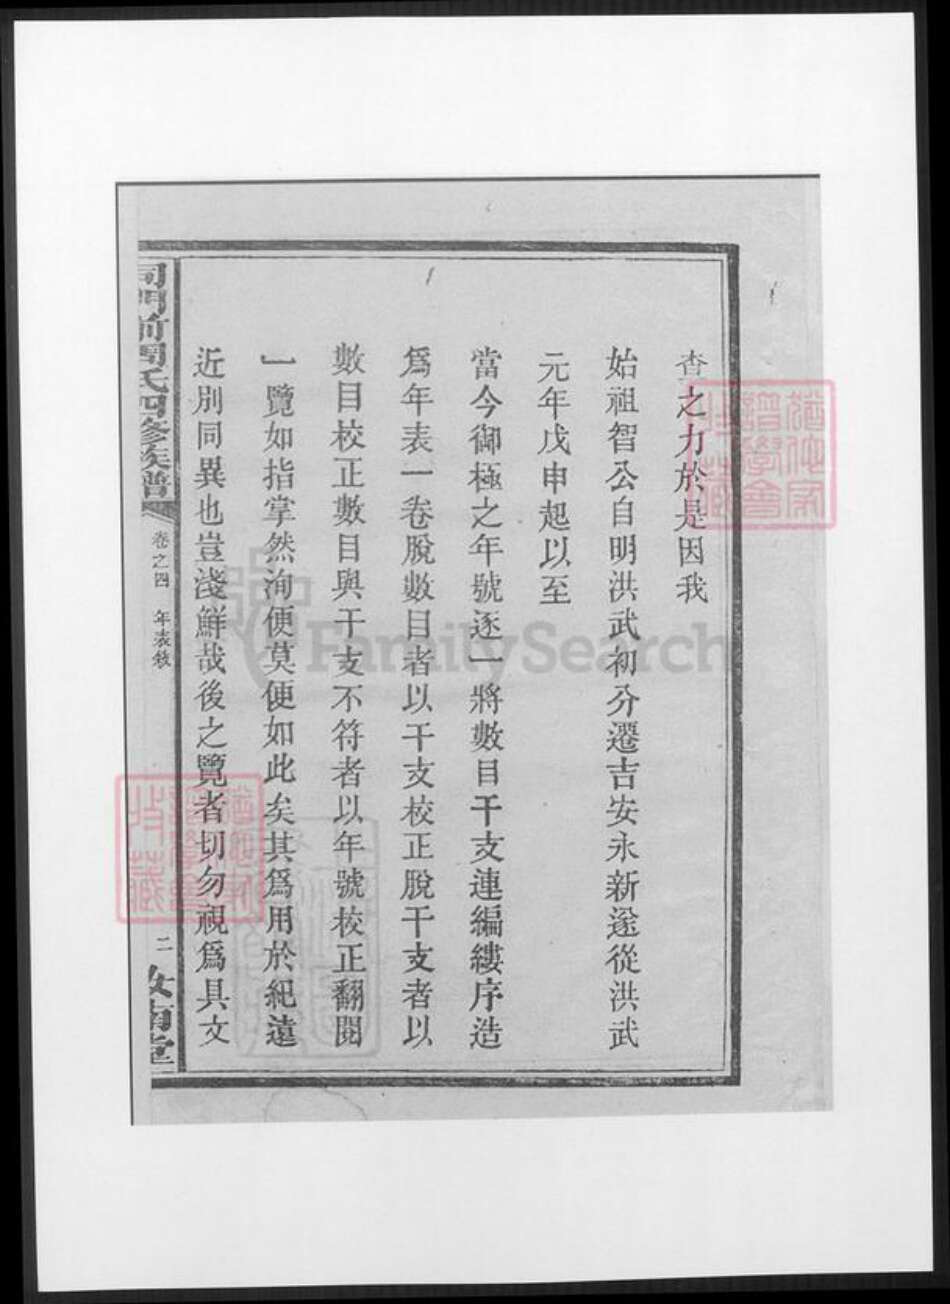 查之力於是因我
始祖智公自明洪武初分遷吉安永新遂從洪武
元年戊申起以至
當今御極之年號逐一將數目干支連編縷序造
爲年表一卷脫數目者以干支校正脫干支者以
數目校正數目與干支不符者以年號校正翻閱
一覽如指掌然洵便莫便如此矣其爲用於紀遠
近別同異也豈淺鮮哉後之覽者切勿視爲具文
司門前周氏四修族譜
卷之四 年表敘
二
汝南堂
FamilySearch